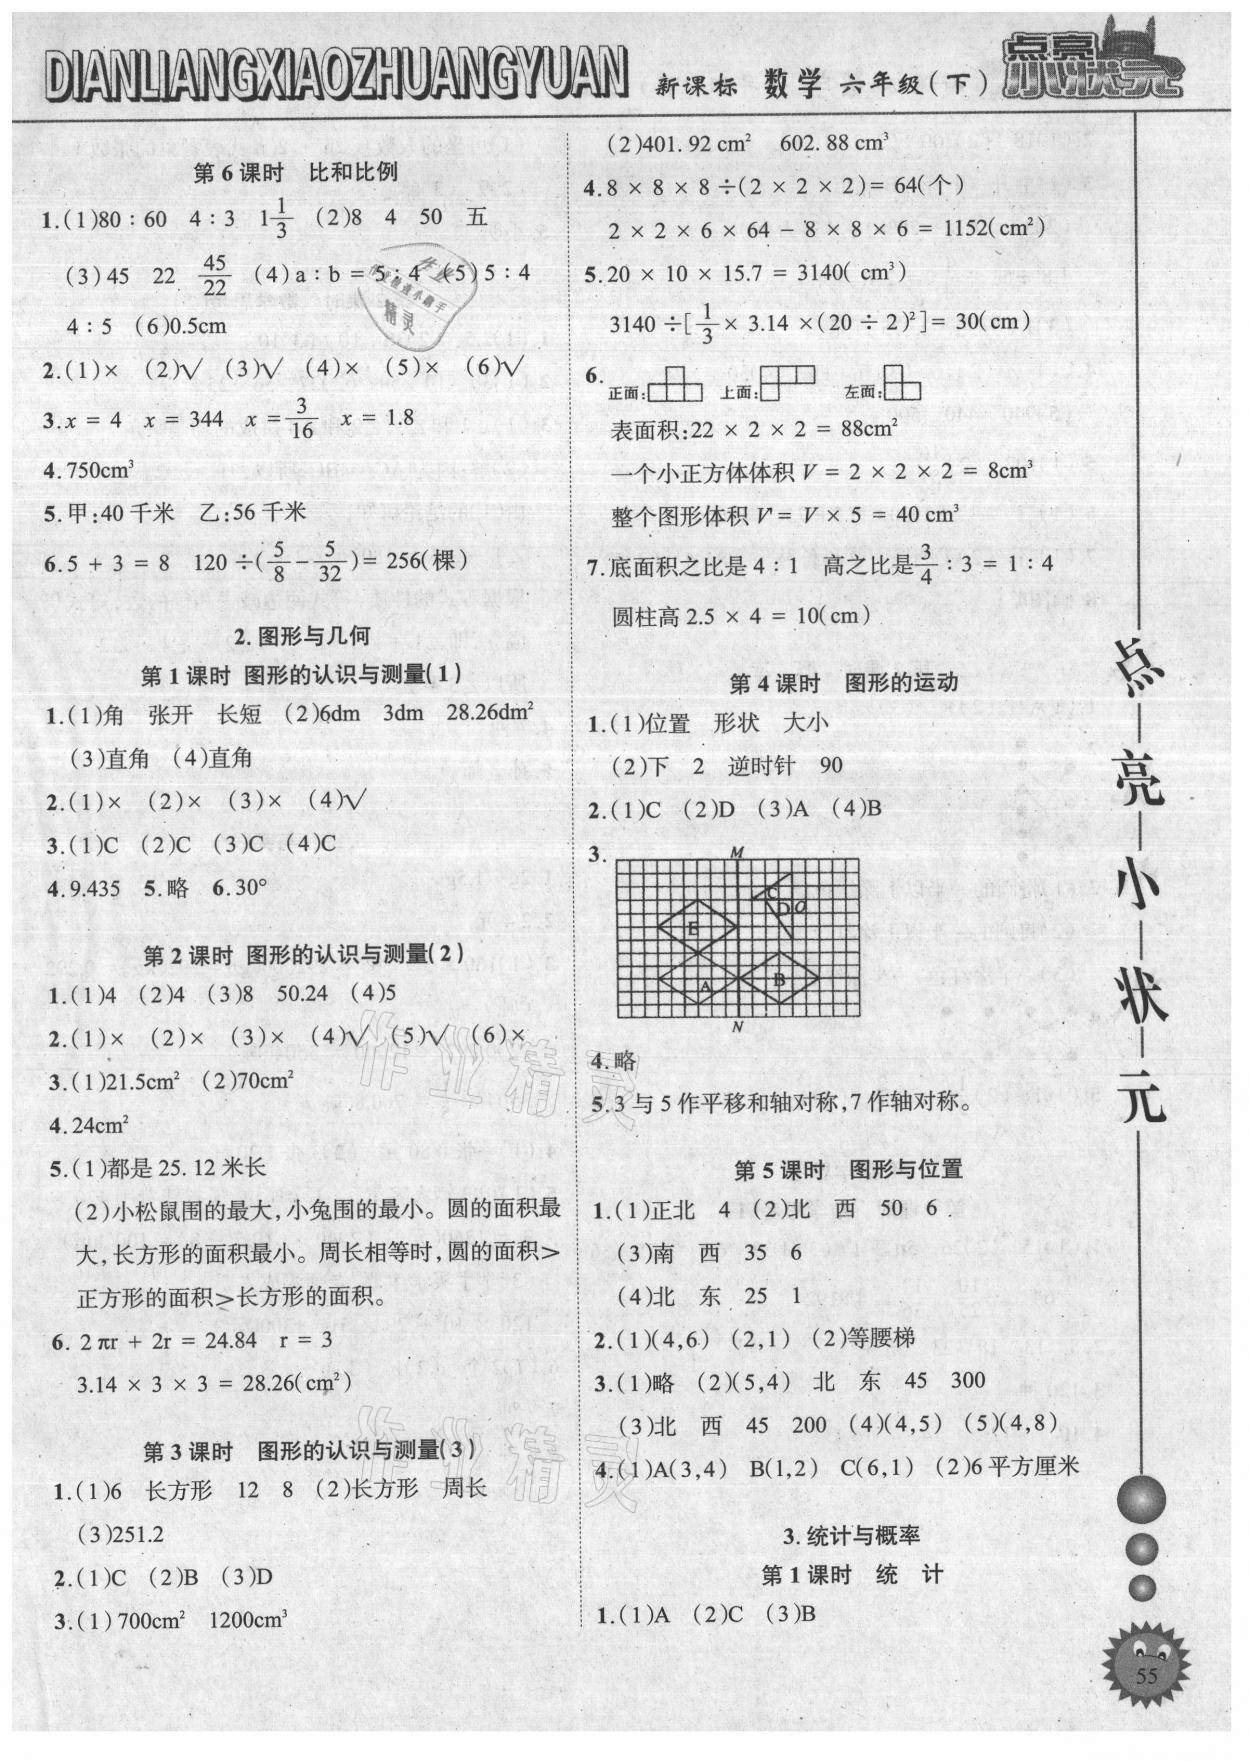 DIANLIANGXIAOZHUANGYUAN 新课标 数学 六年级(下) 点亮小状元
第6课时 比和比例
1.(1)80∶60 4∶3 1 1/3 (2)8 4 50 五
(3)45 22 45/22 (4)a∶b=5∶4 (5)5∶4
4∶5 (6)0.5cm
2.(1)× (2)√ (3)√ (4)× (5)× (6)√
3.x = 4 x = 344 x = 3/16 x = 1.8
4.750cm³
5.甲:40千米 乙:56千米
6.5 + 3 = 8 120 ÷(5/8 − 5/32)= 256(棵)
2.图形与几何
第1课时 图形的认识与测量(1)
1.(1)角 张开 长短 (2)6dm 3dm 28.26dm²
(3)直角 (4)直角
2.(1)× (2)× (3)× (4)√
3.(1)C (2)C (3)C (4)C
4.9.435 5.略 6.30°
第2课时 图形的认识与测量(2)
1.(1)4 (2)4 (3)8 50.24 (4)5
2.(1)× (2)× (3)× (4)√ (5)√ (6)×
3.(1)21.5cm² (2)70cm²
4.24cm²
5.(1)都是25.12米长
(2)小松鼠围的最大,小兔围的最小。圆的面积最
大,长方形的面积最小。周长相等时,圆的面积>
正方形的面积>长方形的面积。
6. 2πr + 2r = 24.84 r = 3
3.14 × 3 × 3 = 28.26(cm²)
第3课时 图形的认识与测量(3)
1.(1)6 长方形 12 8 (2)长方形 周长
(3)251.2
2.(1)C (2)B (3)D
3.(1)700cm² 1200cm³
(2)401.92cm² 602.88cm³
4.8 × 8 × 8 ÷(2 × 2 × 2)= 64(个)
2 × 2 × 6 × 64 − 8 × 8 × 6 = 1152(cm²)
5.20 × 10 × 15.7 = 3140(cm³)
3140 ÷[1/3 × 3.14 ×(20 ÷ 2)²]= 30(cm)
6.正面: 上面: 左面:
表面积:22 × 2 × 2 = 88cm²
一个小正方体体积 V = 2 × 2 × 2 = 8cm³
整个图形体积 V = V × 5 = 40cm³
7.底面积之比是4∶1 高之比是3/4∶3 = 1∶4
圆柱高 2.5 × 4 = 10(cm)
第4课时 图形的运动
1.(1)位置 形状 大小
(2)下 2 逆时针 90
2.(1)C (2)D (3)A (4)B
3.
M
C
D O
E
A B
N
4.略
5.3与5作平移和轴对称,7作轴对称。
第5课时 图形与位置
1.(1)正北 4 (2)北 西 50 6
(3)南 西 35 6
(4)北 东 25 1
2.(1)(4,6) (2,1) (2)等腰梯
3.(1)略 (2)(5,4) 北 东 45 300
(3)北 西 45 200 (4)(4,5) (5)(4,8)
4.(1)A(3,4) B(1,2) C(6,1) (2)6平方厘米
3.统计与概率
第1课时 统 计
1.(1)A (2)C (3)B
点亮小状元
55
作业精灵
作业精灵